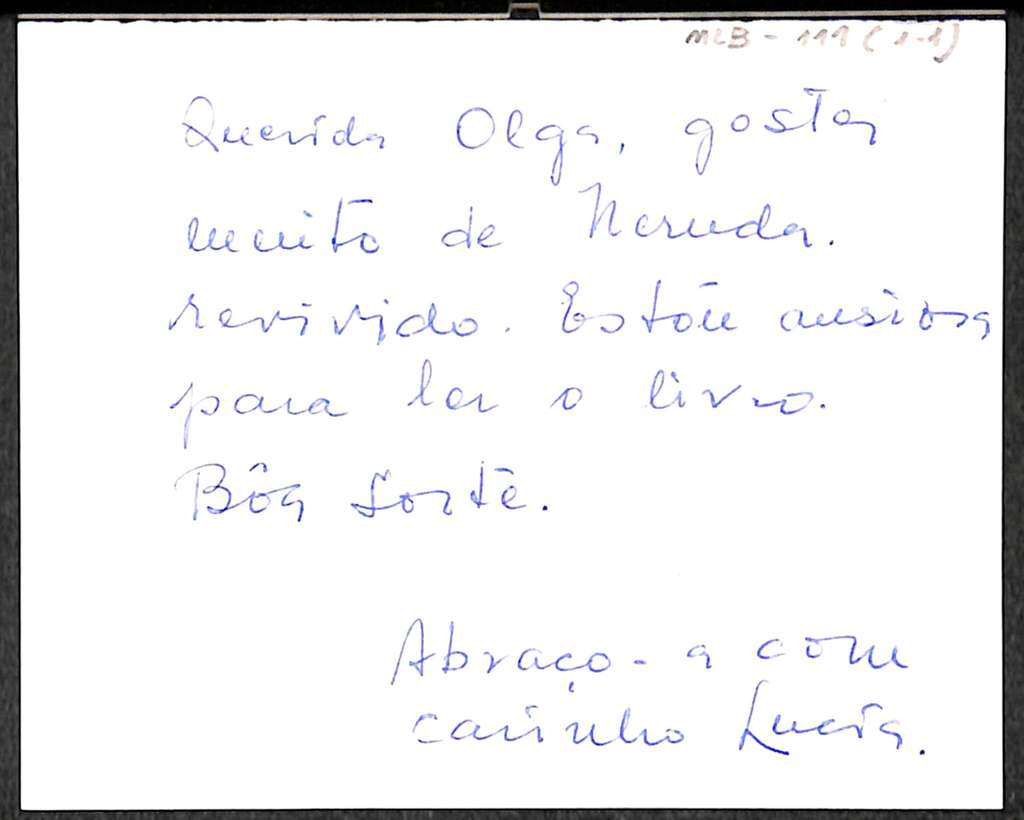 MLB - 111 (1-1)
Querida Olga, gostei
muito de Neruda.
revivido. Estou ansiosa
para ler o livro.
Bôa sorte.
Abraço-a com
carinho Lucia.